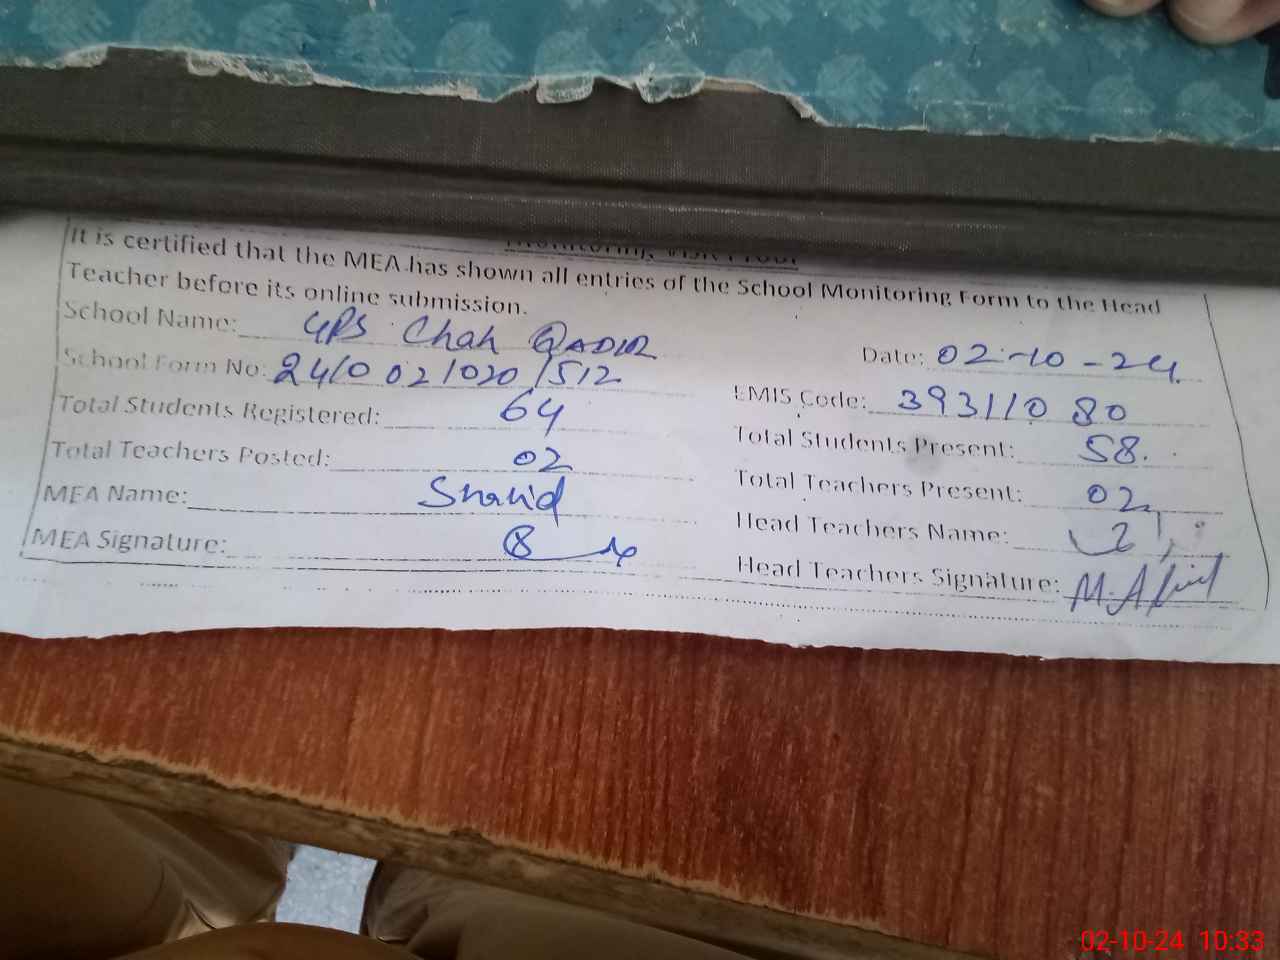 Monitoring Visit Proof
It is certified that the MEA has shown all entries of the School Monitoring Form to the Head
Teacher before its online submission.
School Name: GPS Chah QADIR
Date: 02-10-24
School Form No: 24/0 02/020/512
EMIS Code: 39311080
Total Students Registered: 64
Total Students Present: 58
Total Teachers Posted: 02
Total Teachers Present: 02
MEA Name: Shahid
Head Teachers Name:
MEA Signature:
Head Teachers Signature:
02-10-24 10:33